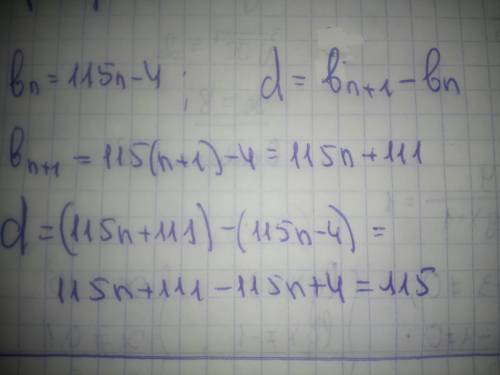 bn = 115n-4; d = bn+1 - bn
bn+1 = 115(n+1)-4 = 115n+111
d = (115n+111)-(115n-4) =
115n+111-115n+4 = 115